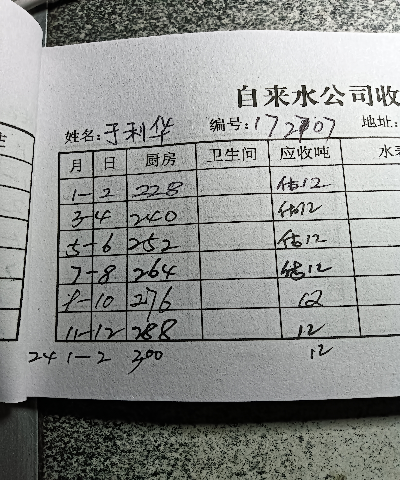 自来水公司收
姓名: 于利华 编号: 172707 地址:
月 日 厨房 卫生间 应收吨 水
1-2 228 估12
3-4 240 估12
5-6 252 估12
7-8 264 估12
9-10 276 12
11-12 288 12
24 1-2 300 12